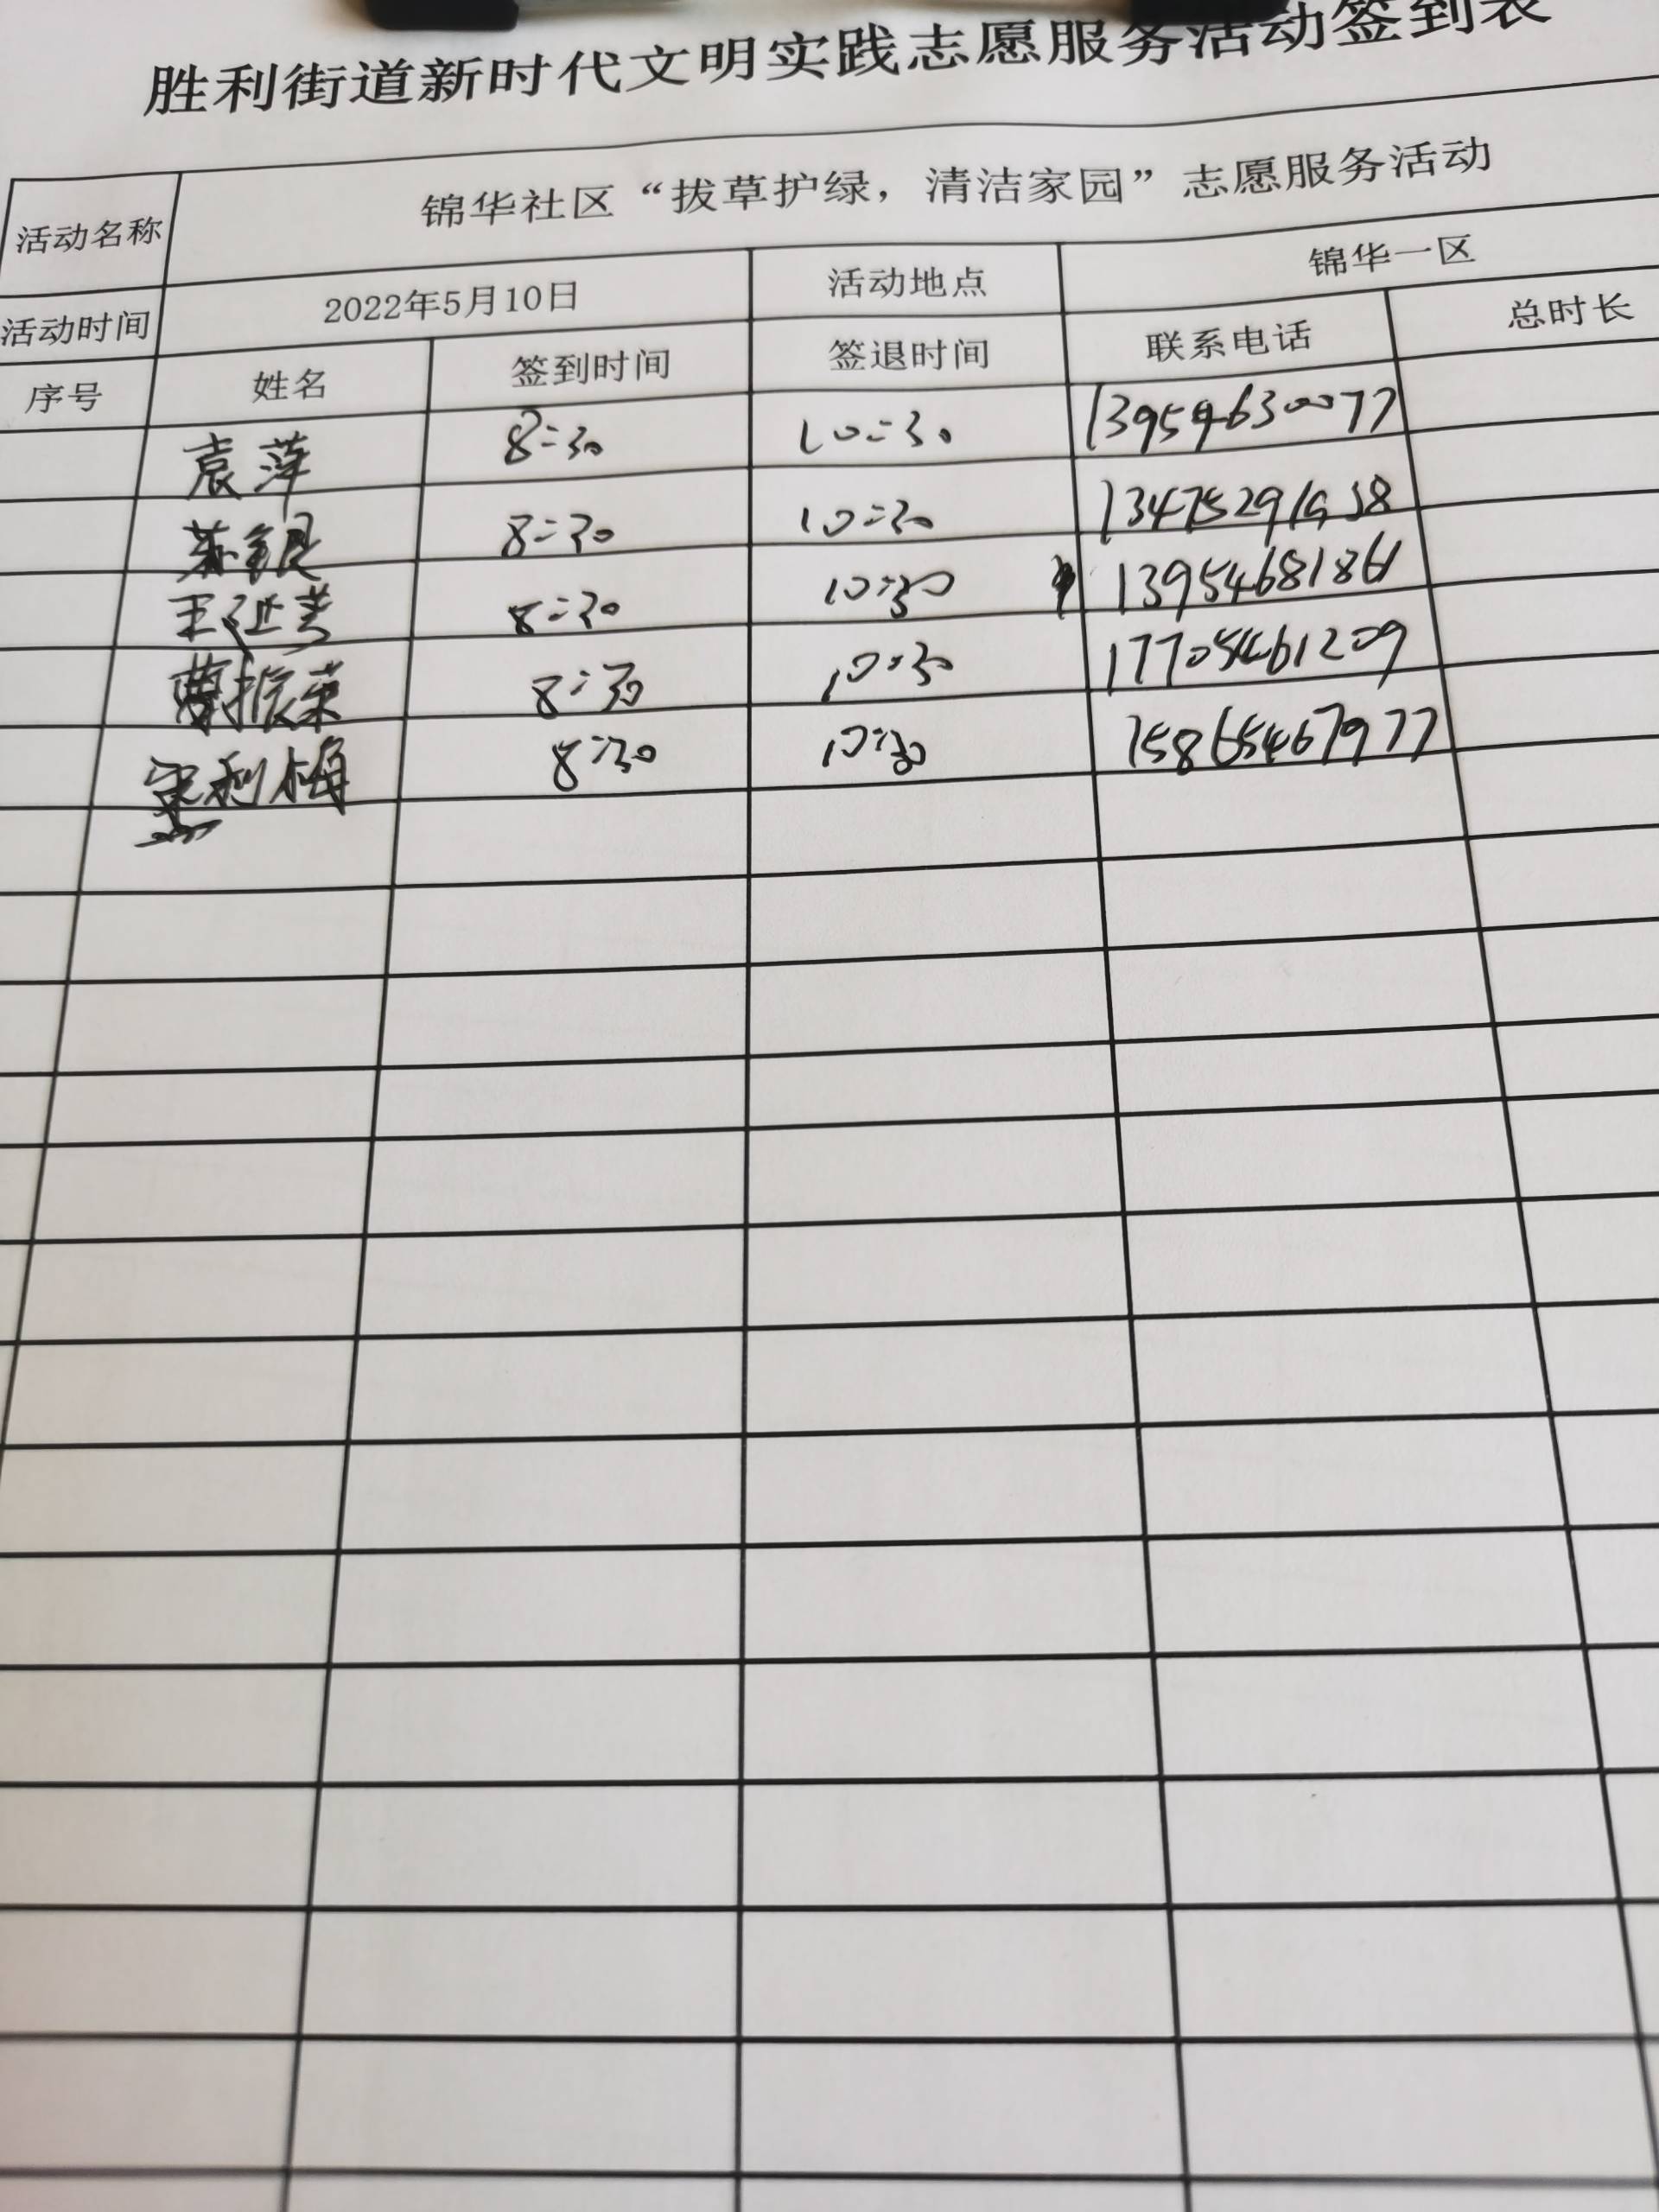 胜利街道新时代文明实践志愿服务活动签到表
活动名称 锦华社区“拔草护绿，清洁家园”志愿服务活动
活动时间 2022年5月10日 活动地点 锦华一区
序号 姓名 签到时间 签退时间 联系电话 总时长
袁萍 8:30 10:30 13954630077
8:30 10:30
8:30 10:30 13954681861
曹振荣 8:30 10:30 17705461209
宋利梅 8:30 10:30 15865467977